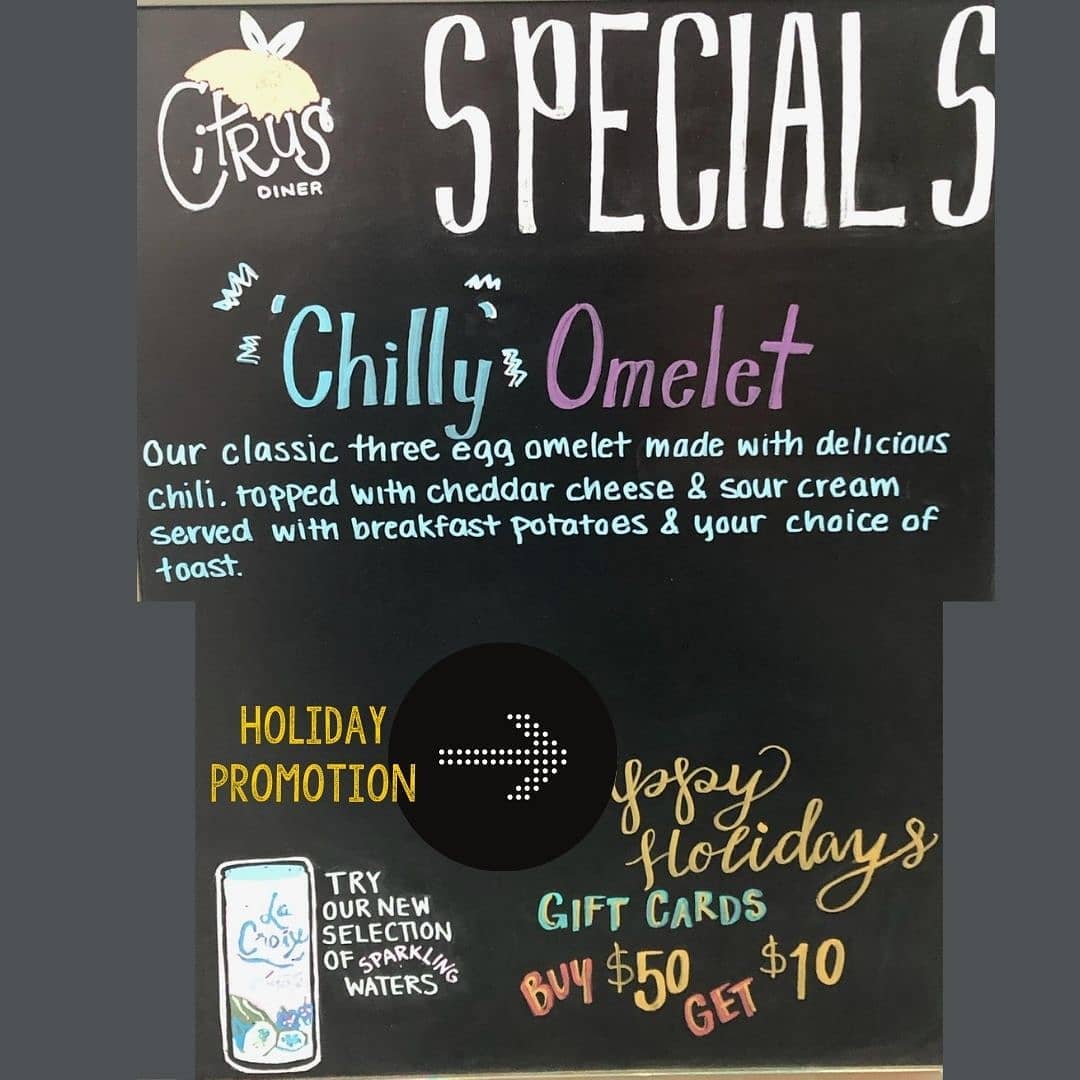 Citrus
DINER
SPECIALS
'Chilly' Omelet
Our classic three egg omelet made with delicious
chili. topped with cheddar cheese & sour cream
served with breakfast potatoes & your choice of
toast.
HOLIDAY
PROMOTION
ppy
Holidays
GIFT CARDS
BUY $50 GET $10
La
Croix
TRY
OUR NEW
SELECTION
OF SPARKLING
WATERS